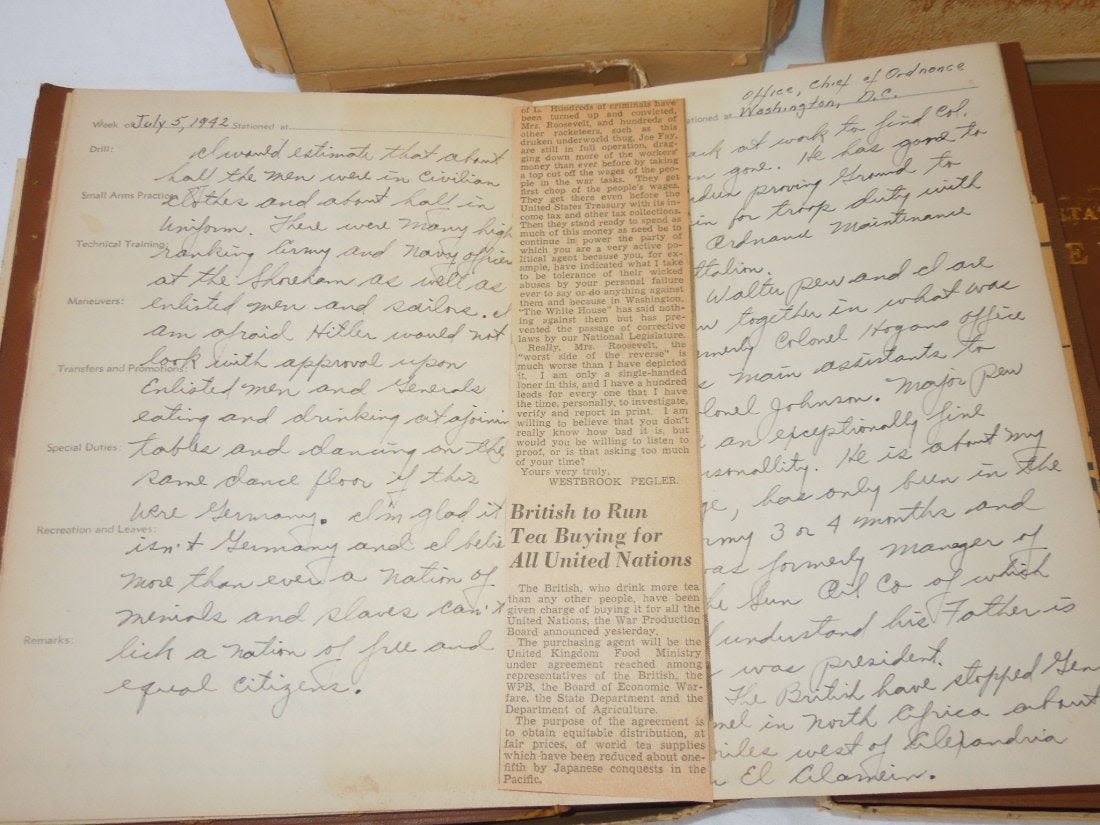 Week of July 5, 1942 Stationed at
Drill:
I would estimate that about
half the men were in civilian
Small Arms Practice
Clothes and about half in
Uniform. There were many high
Technical Training:
ranking Army and Navy officer
at the Shoreham as well as
Maneuvers:
enlisted men and sailors. I
am afraid Hitler would not
look with approval upon
Transfers and Promotions:
Enlisted men and Generals
eating and drinking at ajoinin
Special Duties:
tables and dancing on the
same dance floor if this
were Germany. I'm glad it
Recreation and Leaves:
isn't Germany and I belie
more than ever a nation of
menials and slaves can't
Remarks:
lick a nation of free and
equal citizens.
of L. Hundreds of criminals have
been turned up and convicted,
Mrs. Roosevelt, and hundreds of
other racketeers, such as this
drunken underworld thug, Joe Fay,
are still in full operation, drag-
ging down more of the workers'
money than ever before by taking
a top cut off the wages of the peo-
ple in the war tasks. They get
first chop of the people's wages.
They get there even before the
United States Treasury with its in-
come tax and other tax collections.
Then they stand ready to spend as
much of this money as need be to
continue in power the party of
which you are a very active po-
litical agent because you, for ex-
ample, have indicated what I take
to be tolerance of their wicked
abuses by your personal failure
ever to say or do anything against
them and because in Washington,
"The White House" has said noth-
ing against them but has pre-
vented the passage of corrective
laws by our National Legislature.
Really, Mrs. Roosevelt, the
"worst side of the reverse" is
much worse than I have depicted
it. I am only a single-handed
loner in this, and I have a hundred
leads for every one that I have
the time, personally, to investigate,
verify and report in print. I am
willing to believe that you don't
really know how bad it is, but
would you be willing to listen to
proof, or is that asking too much
of your time?
Yours very truly,
WESTBROOK PEGLER.
British to Run
Tea Buying for
All United Nations
The British, who drink more tea
than any other people, have been
given charge of buying it for all the
United Nations, the War Production
Board announced yesterday.
The purchasing agent will be the
United Kingdom Food Ministry
under agreement reached among
representatives of the British, the
WPB, the Board of Economic War-
fare, the State Department and the
Department of Agriculture.
The purpose of the agreement is
to obtain equitable distribution, at
fair prices, of world tea supplies
which have been reduced about one-
fifth by Japanese conquests in the
Pacific.
Office, Chief of Ordnance
ationed at Washington, D.C.
ack at work to find Col.
n gone. He has gone to
rdeen proving Ground to
in for troop duty with
Ordnance Maintenance
ttalion.
Walter Pew and I are
w together in what was
rmerly Colonel Hogans office
s main assistants to
lonel Johnson. Major Pew
an exceptionally fine
rsonallity. He is about my
ge, has only been in the
rmy 3 or 4 months and
as formerly manager of
he Sun Oil Co of which
I understand his Father is
was president.
The British have stopped Gen
mel in North Africa about
miles west of Alexandria
El Alamein.
TA
E